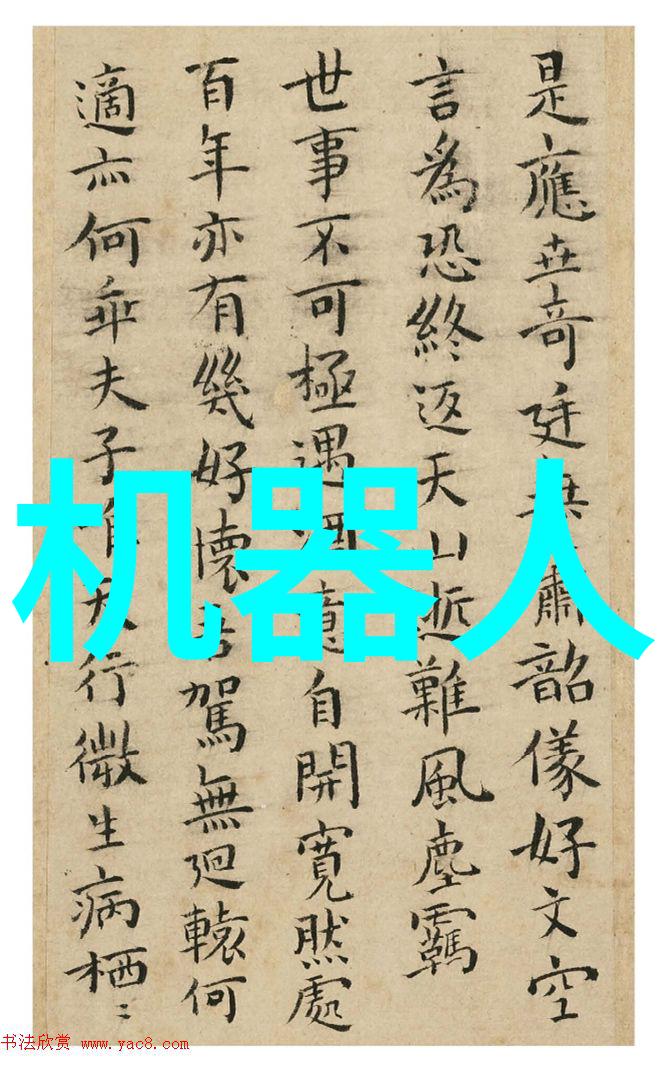 是應世奇廷無肅韶儀好文空
言為恐終返天山逝難風塵羈
世事不可極遇酒竟自開寬然處
百年亦有幾好懷去駕無迴轅何
適亦何乖夫子自天行微生病栖〻
机器人
书法欣赏 www.yac8.com